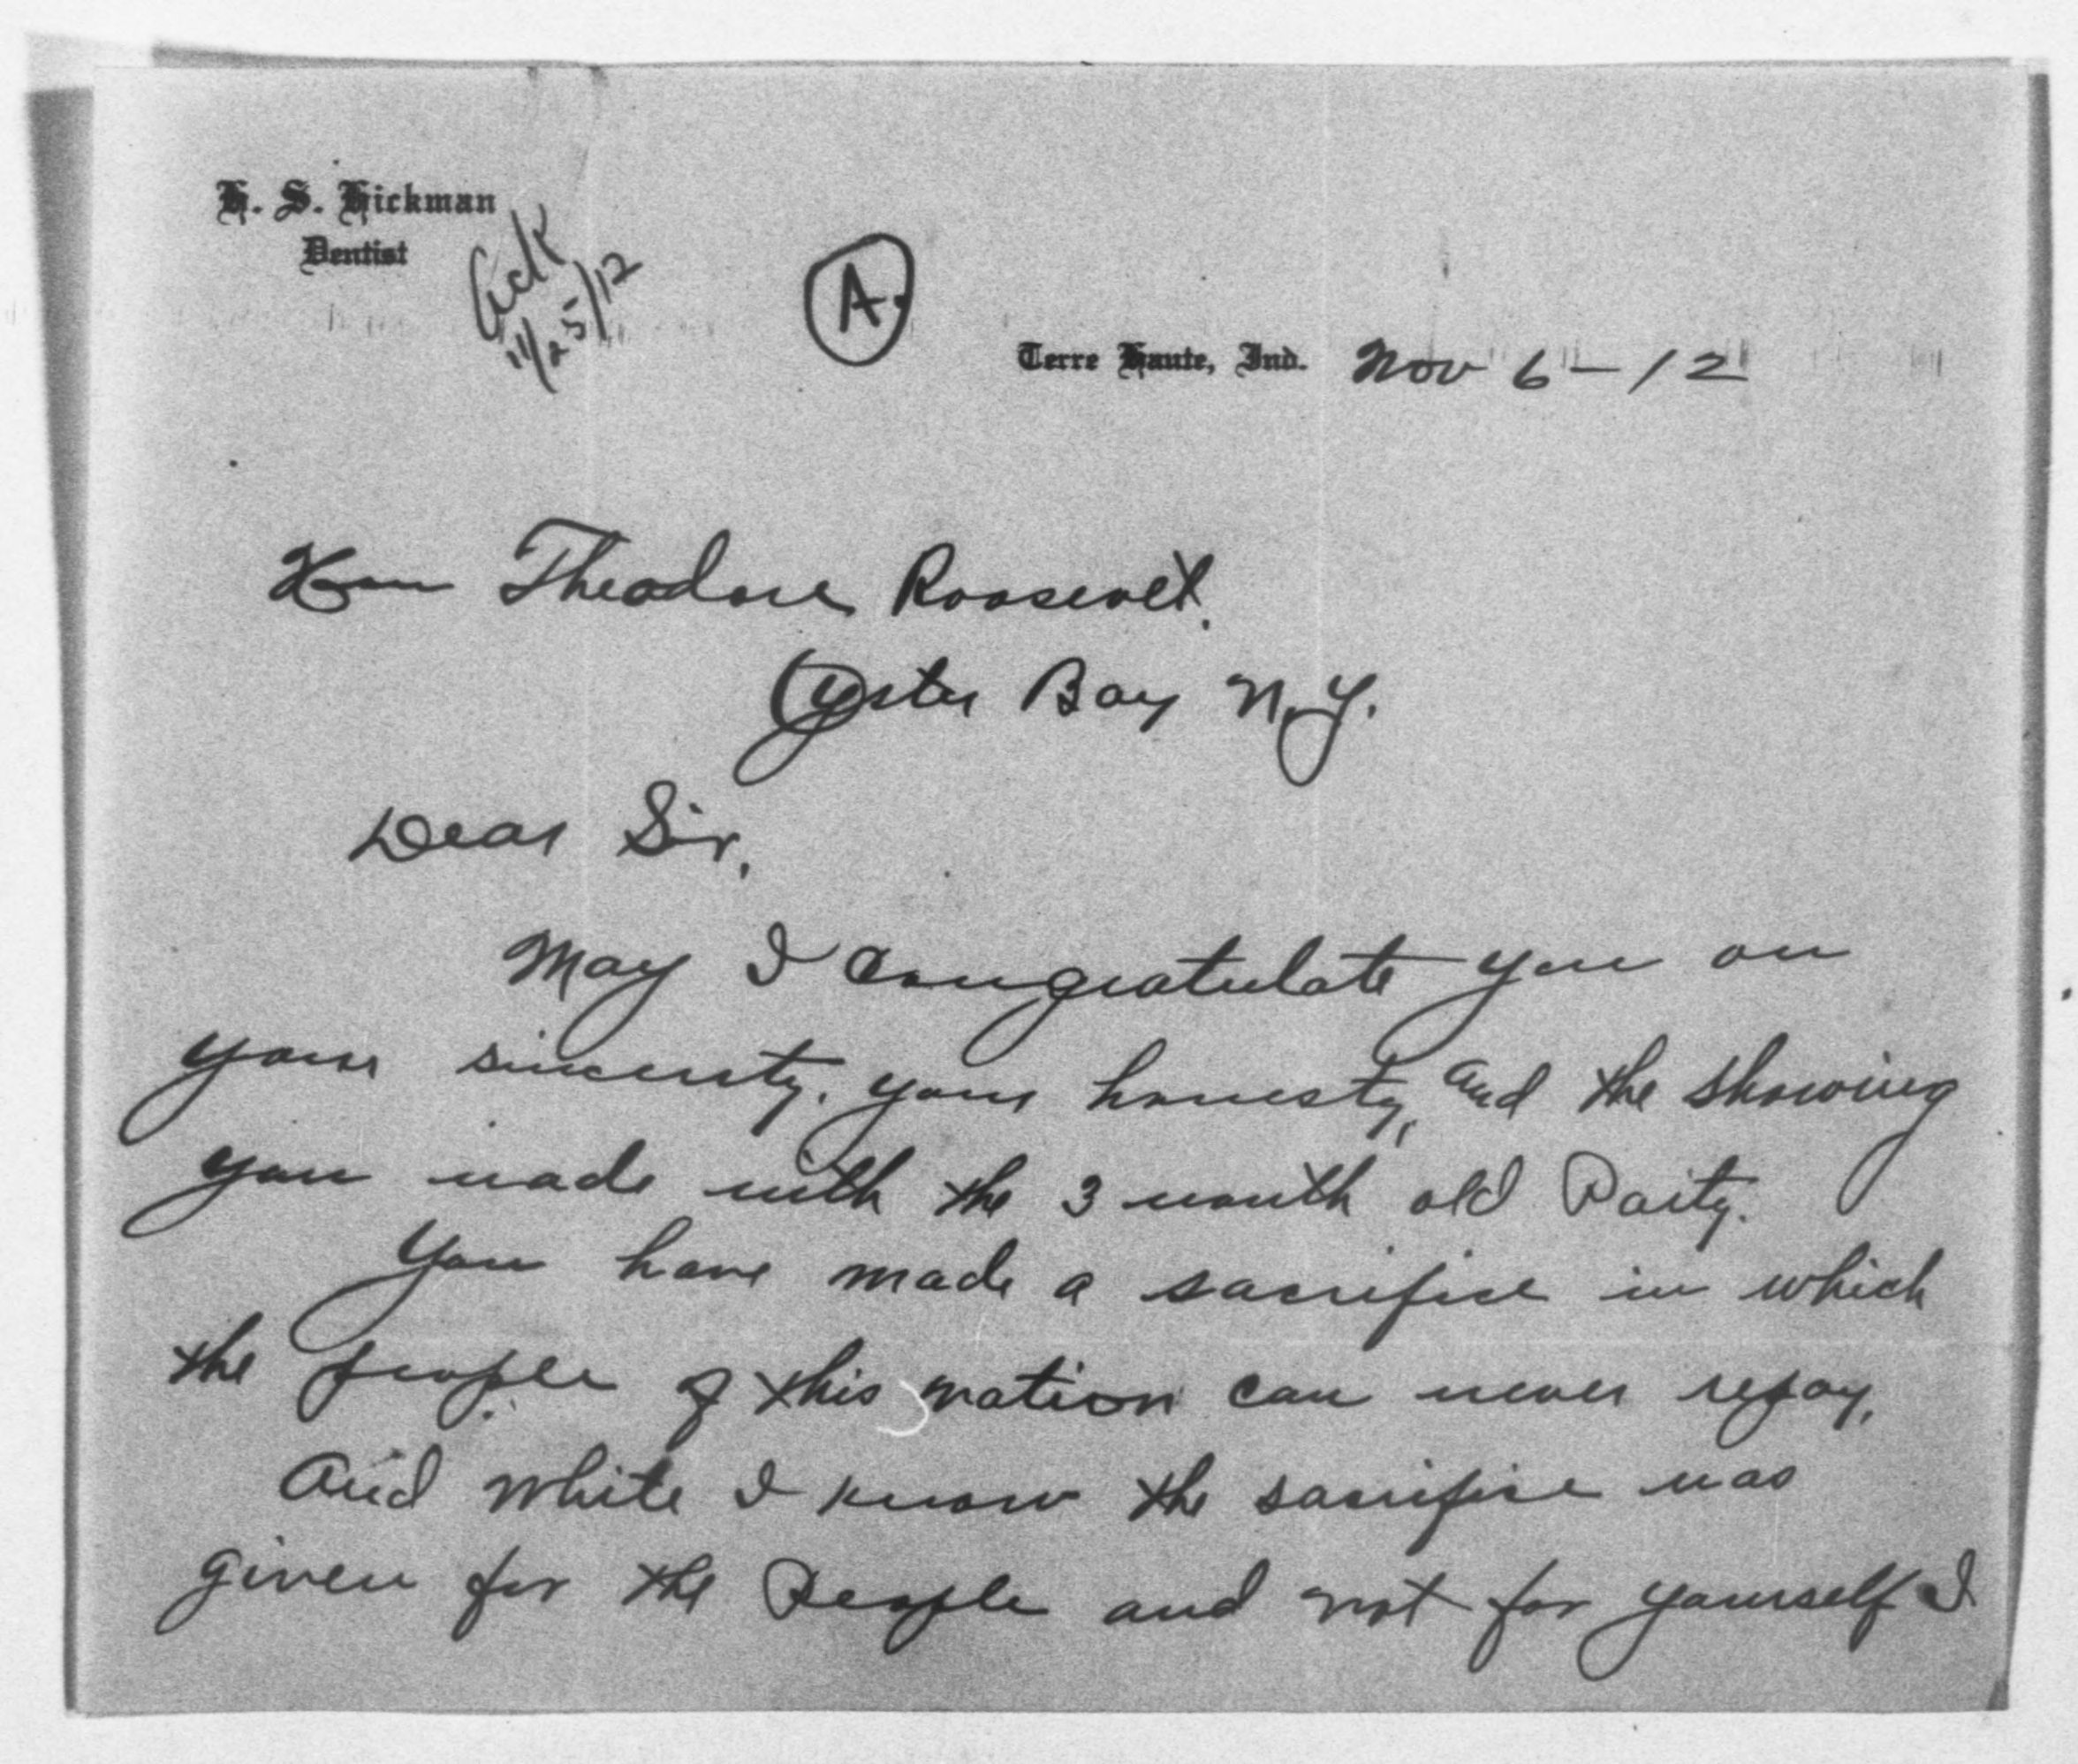 H. S. Hickman
Dentist
Ack
11/25/12
A.
Terre Haute, Ind. Nov 6-12
Hon Theodore Roosevelt.
Oyster Bay N.Y.
Dear Sir,
May I congratulate you on
your sincerity, your honesty, and the showing
you made with the 3 month old Party.
You have made a sacrifice in which
the people of this nation can never repay,
And while I know the sacrifice was
given for the People and not for yourself I